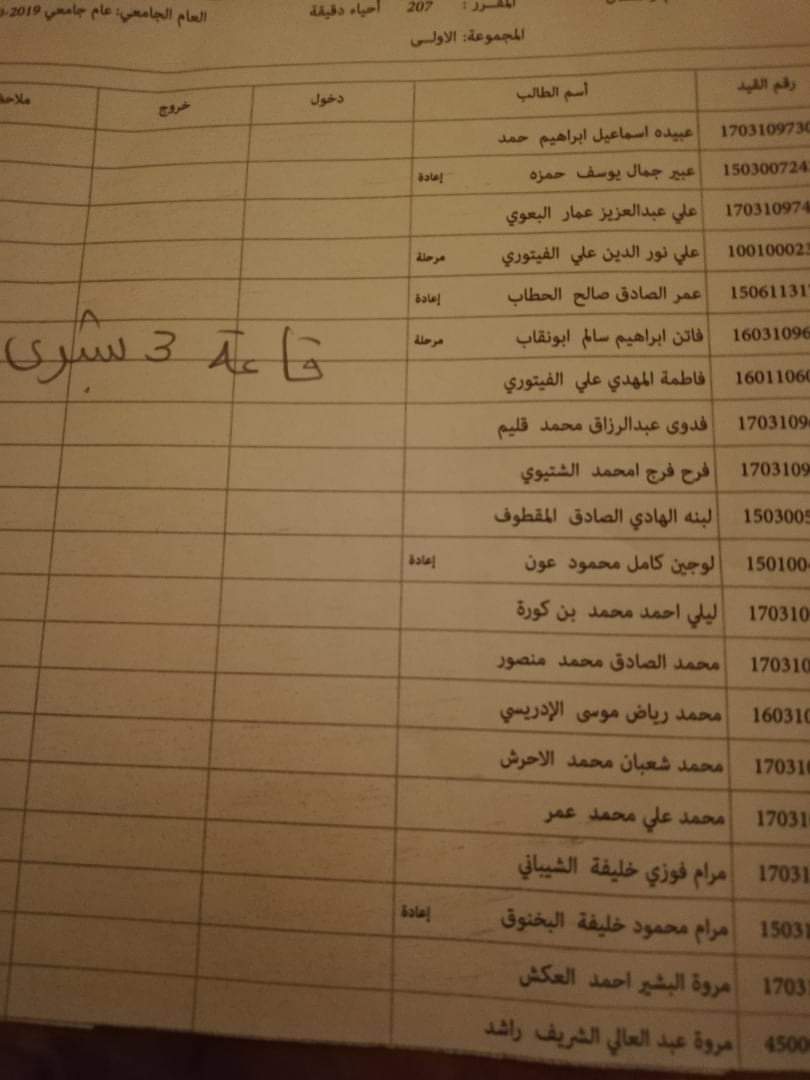 المقرر: 207 أحياء دقيقة العام الجامعي: عام جامعي 2019
المجموعة: الاولى
رقم القيد أسم الطالب دخول خروج
1703109730 عبيده اسماعيل ابراهيم حمد
150300724 عبير جمال يوسف حمزه إعادة
170310974 علي عبدالعزيز عمار البعوي
100100023 علي نور الدين علي الفيتوري مرحلة
150611317 عمر الصادق صالح الحطاب إعادة
16031096 فاتن ابراهيم سالم ابونقاب مرحلة
قاعة 3 بشرى
16011060 فاطمة المهدي علي الفيتوري
1703109 فدوى عبدالرزاق محمد قليم
1703109 فرح فرج امحمد الشتيوي
1503005 لبنه الهادي الصادق المقطوف
150100 لوجين كامل محمود عون إعادة
170310 ليلي احمد محمد بن كورة
170310 محمد الصادق محمد منصور
160310 محمد رياض موسى الإدريسي
17031 محمد شعبان محمد الاحرش
17031 محمد علي محمد عمر
17031 مرام فوزي خليفة الشيباني
1503 مرام محمود خليفة البخنوق إعادة
1703 مروة البشير احمد العكش
4500 مروة عبد العالي الشريف راشد